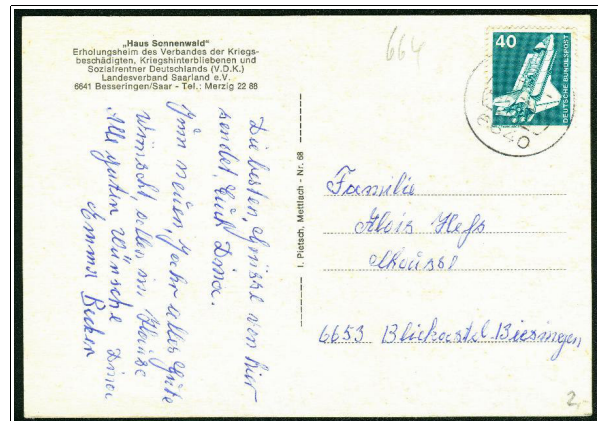 „Haus Sonnenwald"
Erholungsheim des Verbandes der Kriegs-
beschädigten, Kriegshinterbliebenen und
Sozialrentner Deutschlands (V.D.K.)
Landesverband Saarland e.V.
6641 Besseringen/Saar - Tel.: Merzig 22 88
Die besten Grüsse von hier
sendet Euch Dina.
Im neuen Jahr alles Gute
wünscht allen im Hause
Alle guten Wünsche Dina
Emma Becker
I. Pietsch, Mettlach - Nr. 68
664
40
DEUTSCHE BUNDESPOST
6640
Familie
Alois Hess
6653 Blieskastel Biesingen
2,-